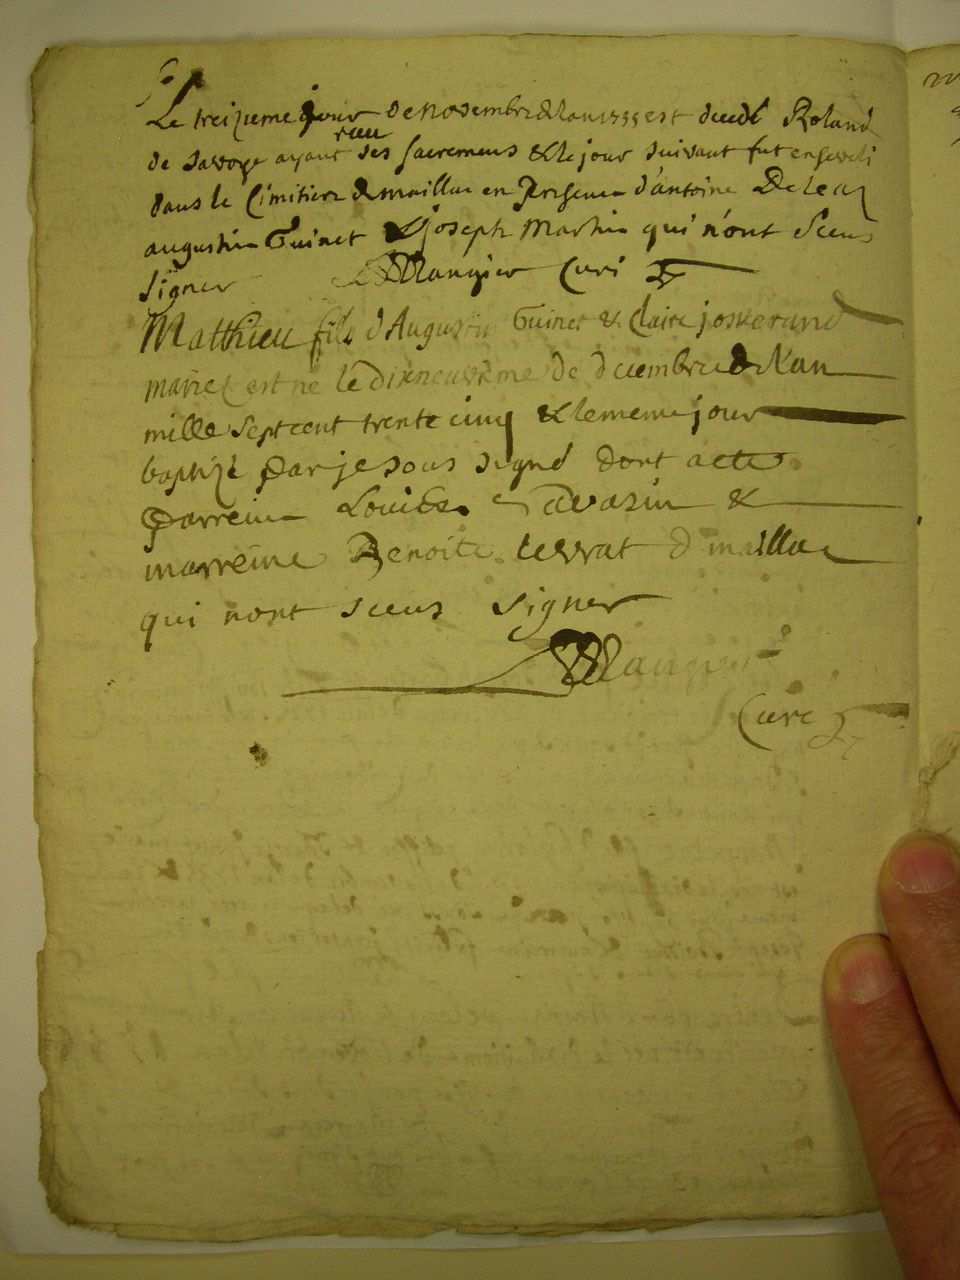 Le treizieme jour de novembre & lan 1735 est decedé Roland
de Savoye ayant receu ses sacremens & le jour suivant fut enseveli
dans le Cimitiere de maillac en presence d'antoine
augustin Guinet & joseph Martin qui n'ont sceus
signer Maugier Curé
Matthieu fils d'Augustin Guinet & Claire josserand
mariez est né le dixneuvieme de decembre de Lan
mille sept cent trente cinq & le meme jour
baptizé par je sous signé dont acte
parrein Louis Savasin &
marreine Benoite terrat de maillac
qui nont sceus signer
Maugier
Curé